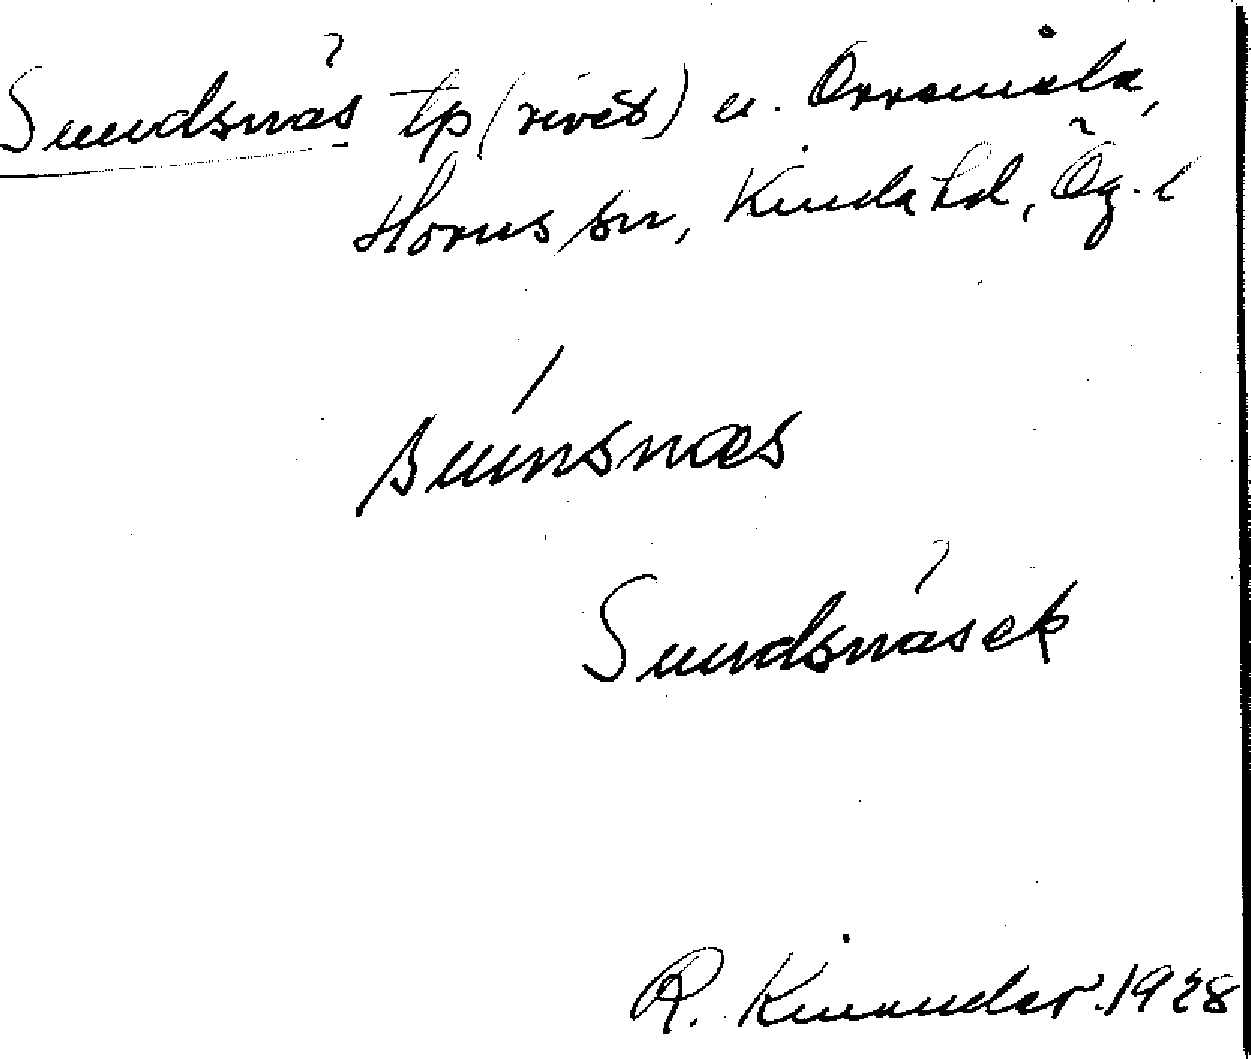 Sundsnäs tp (rivet) u. Orramåla,
Horns sn, Kinda hd, Ög. l
sunsnæs
Sundsnäsek
R. Kinander 1928